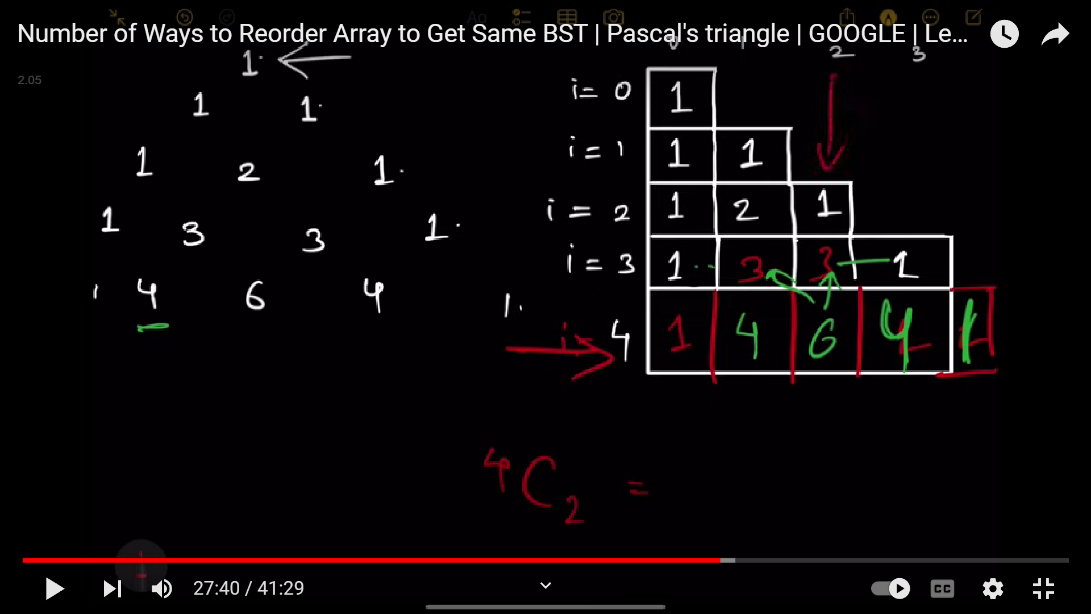 Number of Ways to Reorder Array to Get Same BST | Pascal's triangle | GOOGLE | Le...
2.05
1.
1 1.
1 2 1.
1 3 3 1.
1 4 6 4 1.
2 3
i = 0 1
i = 1 1 1
i = 2 1 2 1
i = 3 1 3 3 1
i = 4 1 4 6 4 1
4C2 =
27:40 / 41:29
CC